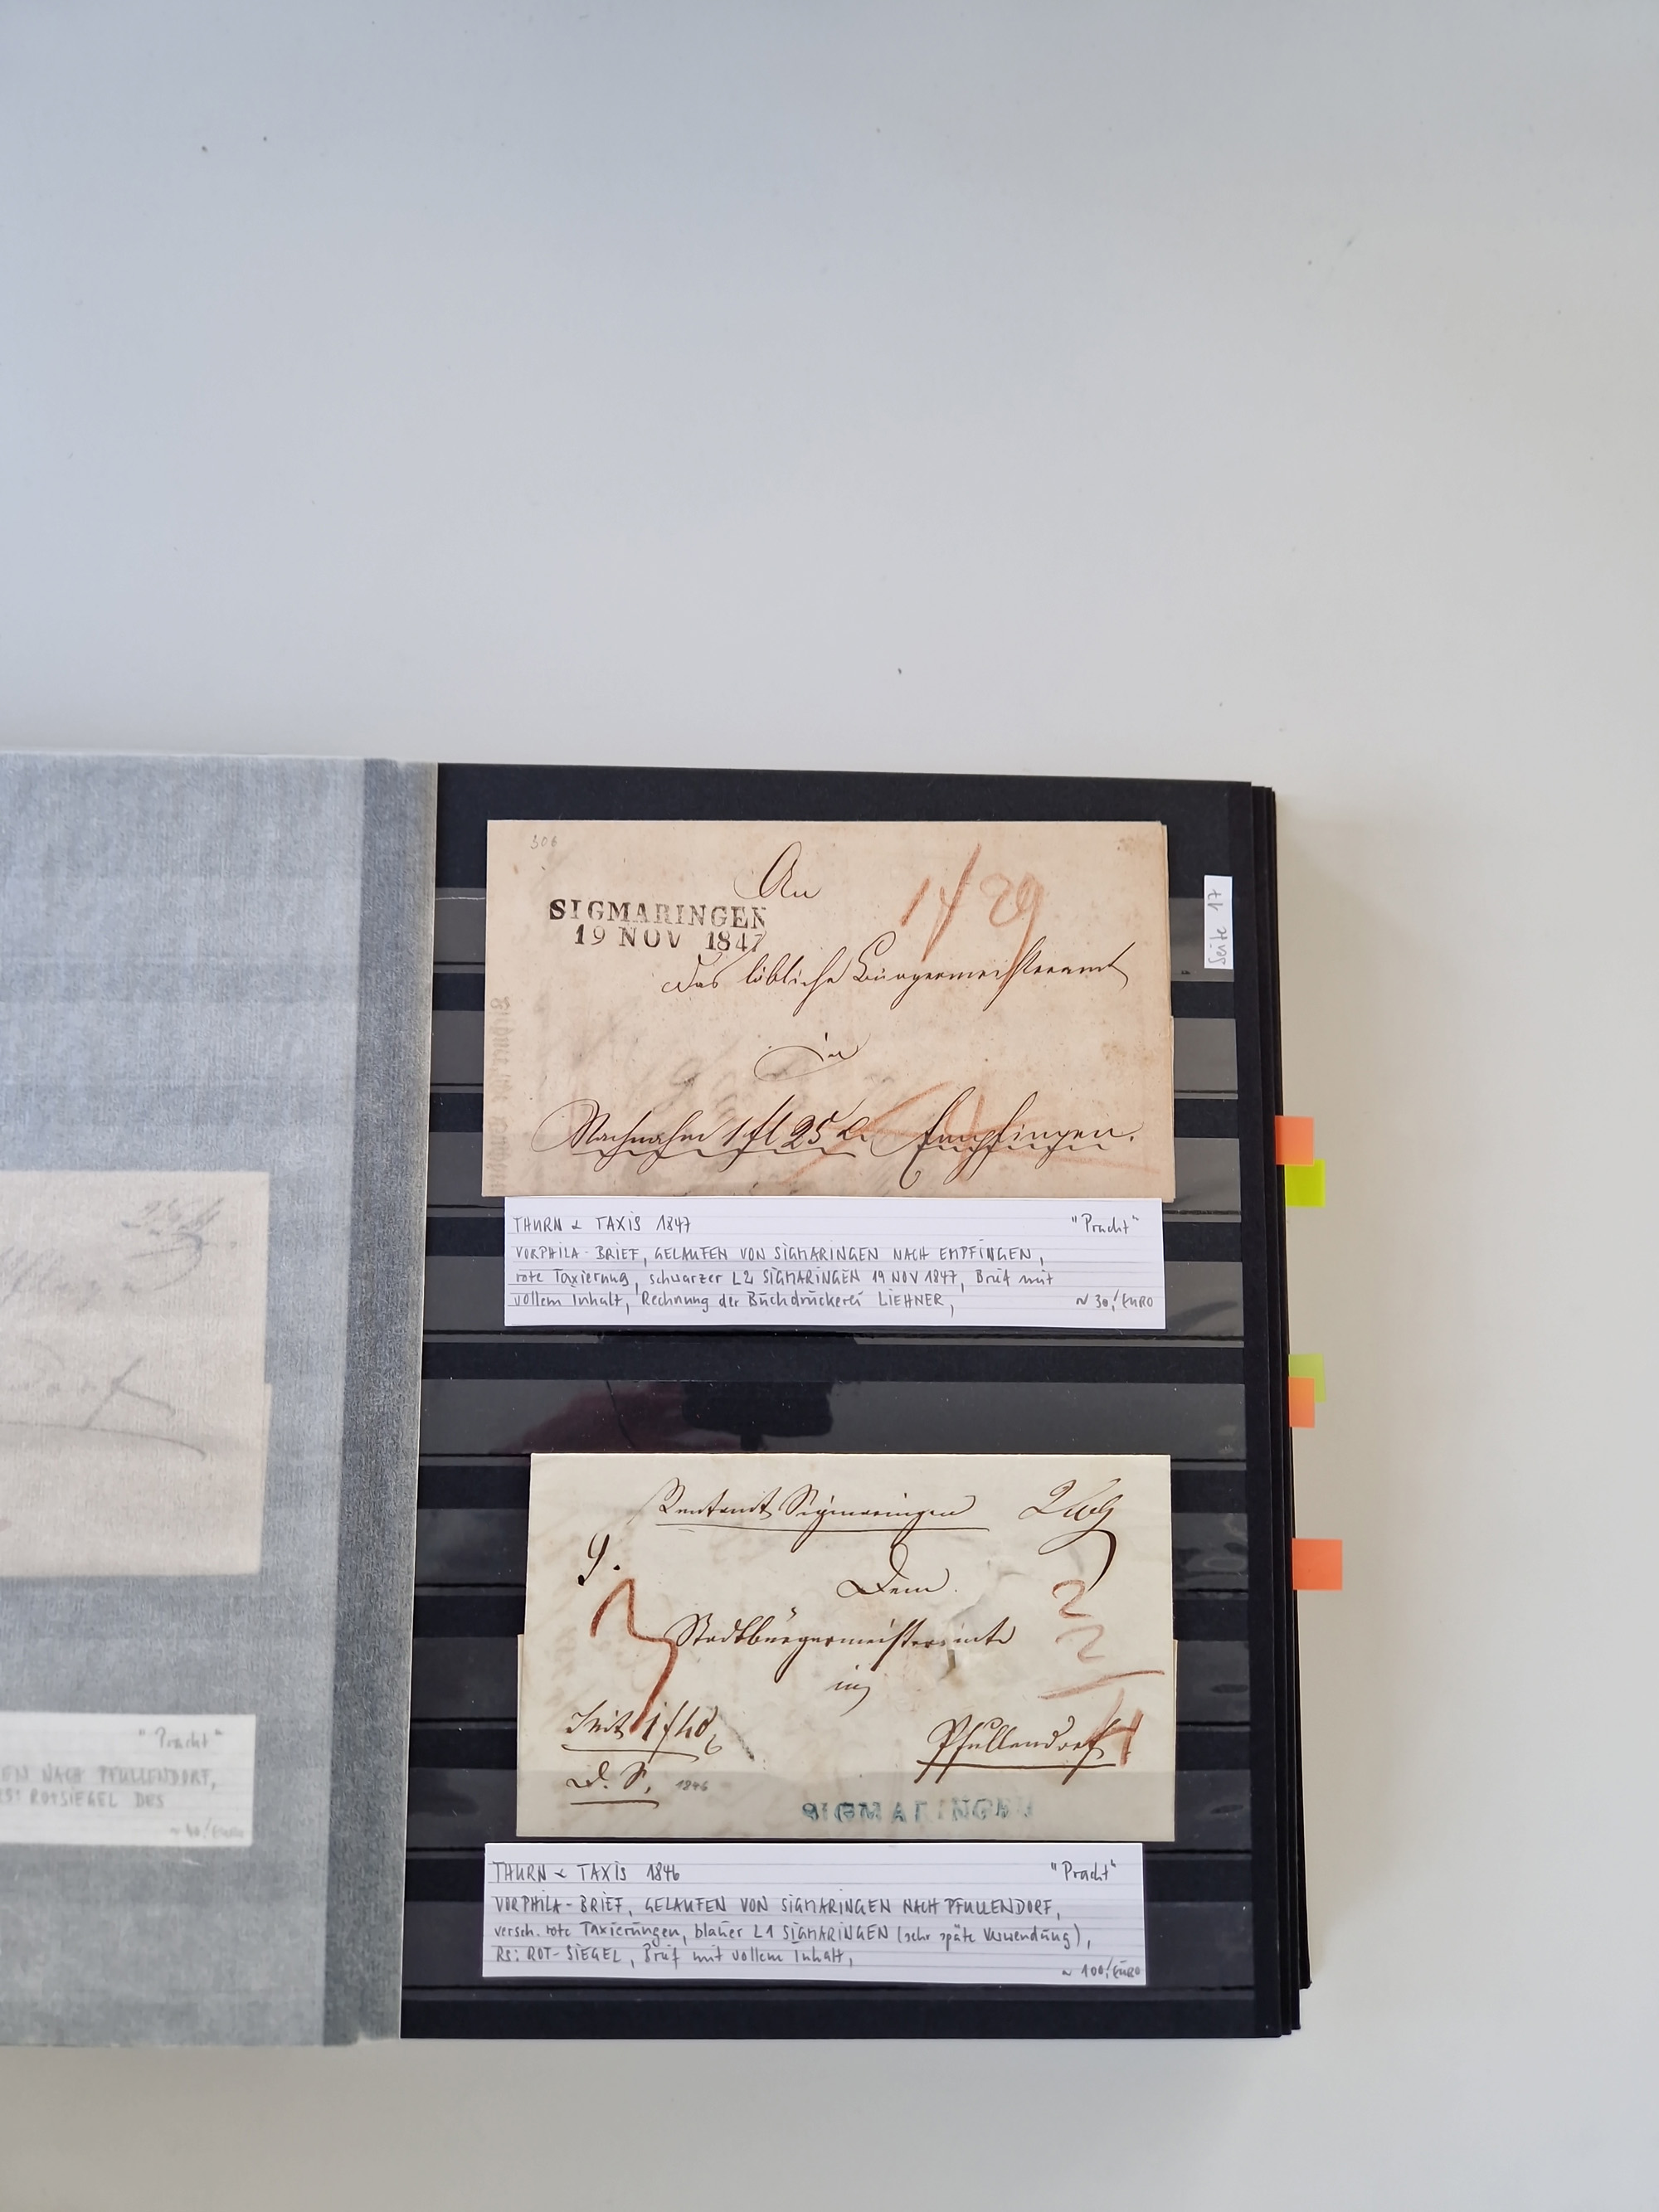 306
An
SIGMARINGEN
19 NOV 1847
1 f 29
Das löbliche Bürgermeisteramt
in
Nachnahme 1 fl 25 Kr Empfingen.
Seite 17
THURN & TAXIS 1847 "Pracht"
VORPHILA-BRIEF, GELAUFEN VON SIGMARINGEN NACH EMPFINGEN,
rote Taxierung, schwarzer L2 SIGMARINGEN 19 NOV 1847, Brief mit
vollem Inhalt, Rechnung der Buchdruckerei LIEHNER,
~ 30,-/EURO
Rentamt Sigmaringen
Dem
Stadtbürgermeisteramte
in
Mit 1 f 40
Pfullendorf.
D. S. 1846
SIGMARINGEN
THURN & TAXIS 1846 "Pracht"
VORPHILA-BRIEF, GELAUFEN VON SIGMARINGEN NACH PFULLENDORF,
versch. rote Taxierungen, blauer L1 SIGMARINGEN (sehr späte Verwendung),
RS: ROT-SIEGEL, Brief mit vollem Inhalt,
~ 100,-/EURO
"Pracht"
EN NACH PFULLENDORF,
RS: ROTSIEGEL DES